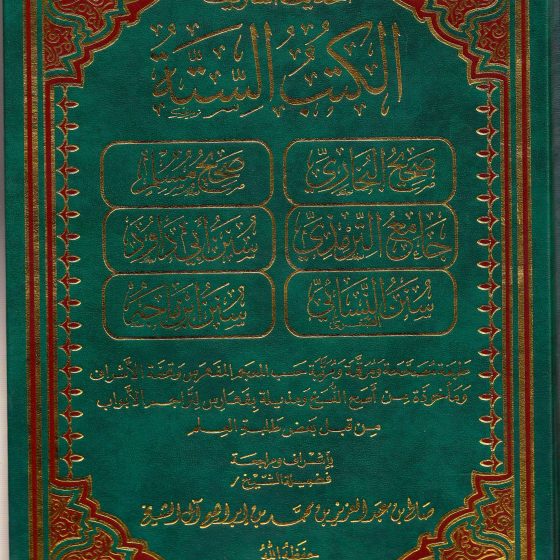 الحديث الشريف
الكتب السِّتَّة
صحيح البُخاريّ
صحيح مُسلم
جامع التِّرمذيّ
سُنن أبي داود
سُنن النَّسائيّ
الصُّغرى
سُنن ابن ماجه
طبعة مصحّحة ومرقّمة ومرتّبة حسب المعجم المفهرس وتحفة الأشراف
ومأخوذة من أصحّ النّسخ ومذيلة بفهارس لتراجم الأبواب
من قبل بعض طلبة العلم
بإشراف ومراجعة
فضيلة الشيخ /
صالح بن عبد العزيز بن محمد بن إبراهيم آل الشيخ
حفظه الله